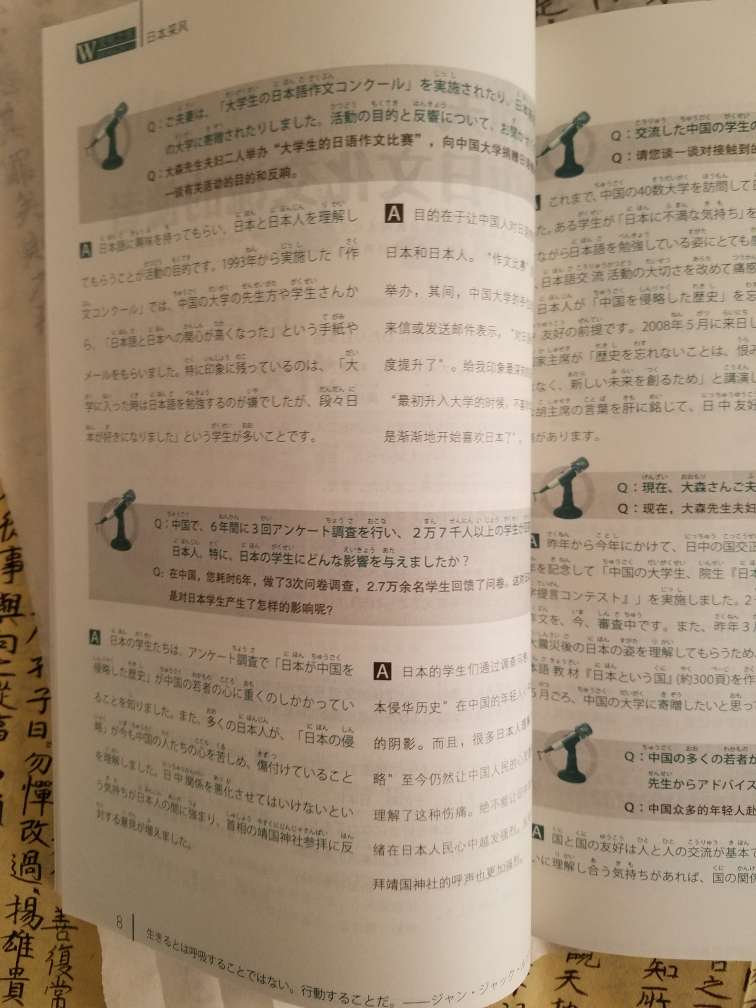 日本采风
Q：ご夫妻は、「大学生の日本語作文コンクール」を実施されたり、日本
の大学に寄贈されたりしました。活動の目的と反響について、お聞か
Q：大森先生夫妇二人举办“大学生的日语作文比赛”，向中国大学捐赠日
一谈有关活动的目的和反响。
A 日本語に興味を持ってもらい、日本と日本人を理解し
てもらうことが活動の目的です。1993年から実施した「作
文コンクール」では、中国の大学の先生方や学生さんか
ら、「日本語と日本への関心が高くなった」という手紙や
メールをもらいました。特に印象に残っているのは、「大
学に入った時は日本語を勉強するのが嫌でしたが、段々日
本が好きになりました」という学生が多いことです。
A 目的在于让中国人对日
日本和日本人。“作文比赛”
举办，其间，中国大学的
来信或发送邮件表示，“对日
度提升了”。给我印象最深
“最初升入大学的时候，不
是渐渐地开始喜欢日本了”。
Q：中国で、6年間に3回アンケート調査を行い、2万7千人以上の学生が
日本人、特に、日本の学生にどんな影響を与えましたか？
Q：在中国，您耗时6年，做了3次问卷调查，2.7万余名学生回馈了问卷。这
是对日本学生产生了怎样的影响呢？
A 日本の学生たちは、アンケート調査で「日本が中国を
侵略した歴史」が中国の若者の心に重くのしかかってい
ることを知りました。また、多くの日本人が、「日本の侵
略」が今も中国の人たちの心を苦しめ、傷付けていること
を理解しました。日中関係を悪化させてはいけないとい
う気持ちが日本人の間に強まり、首相の靖国神社参拝に反
対する意見が増えました。
A 日本的学生们通过调查
本侵华历史”在中国的年轻人
的阴影。而且，很多日本人
略”至今仍然让中国人民的心
理解了这种伤痛。绝不能让
绪在日本人民心中越发强烈。
拜靖国神社的呼声也更加强烈。
8
生きるとは呼吸することではない。行動することだ。——ジャン・ジャック・
Q：交流した中国の学生の
Q：请您谈一谈对接触到的
これまで、中国の40数大学を訪問して
た。ある学生が「日本に不満な気持ち」を
ながら日本語を勉強している姿にとても
、日本語交流活動の大切さを改めて痛感
日本人が「中国を侵略した歴史」を忘
友好の前提です。2008年5月に来日し
家主席が「歴史を忘れないことは、恨み
なく、新しい未来を創るため」と講演し
胡主席の言葉を肝に銘じて、日中友好
があります。
Q：現在、大森さんご夫
Q：现在，大森先生夫妇
A 昨年から今年にかけて、日中の国交正
を記念して「中国の大学生、院生『日本
提言コンテスト』」を実施しました。2
文を、今、審査中です。また、昨年3月
大震災後の日本の姿を理解してもらうため
本語教材『日本という国』（約300頁）を作
5月ごろ、中国の大学に寄贈したいと思っ
Q：中国の多くの若者が
先生からアドバイス
Q：中国众多的年轻人赴
A 国と国の友好は人と人の交流が基本で
いに理解し合う気持ちがあれば、国の関係
事與
孔子曰勿憚改過
揚雄貴
善復常